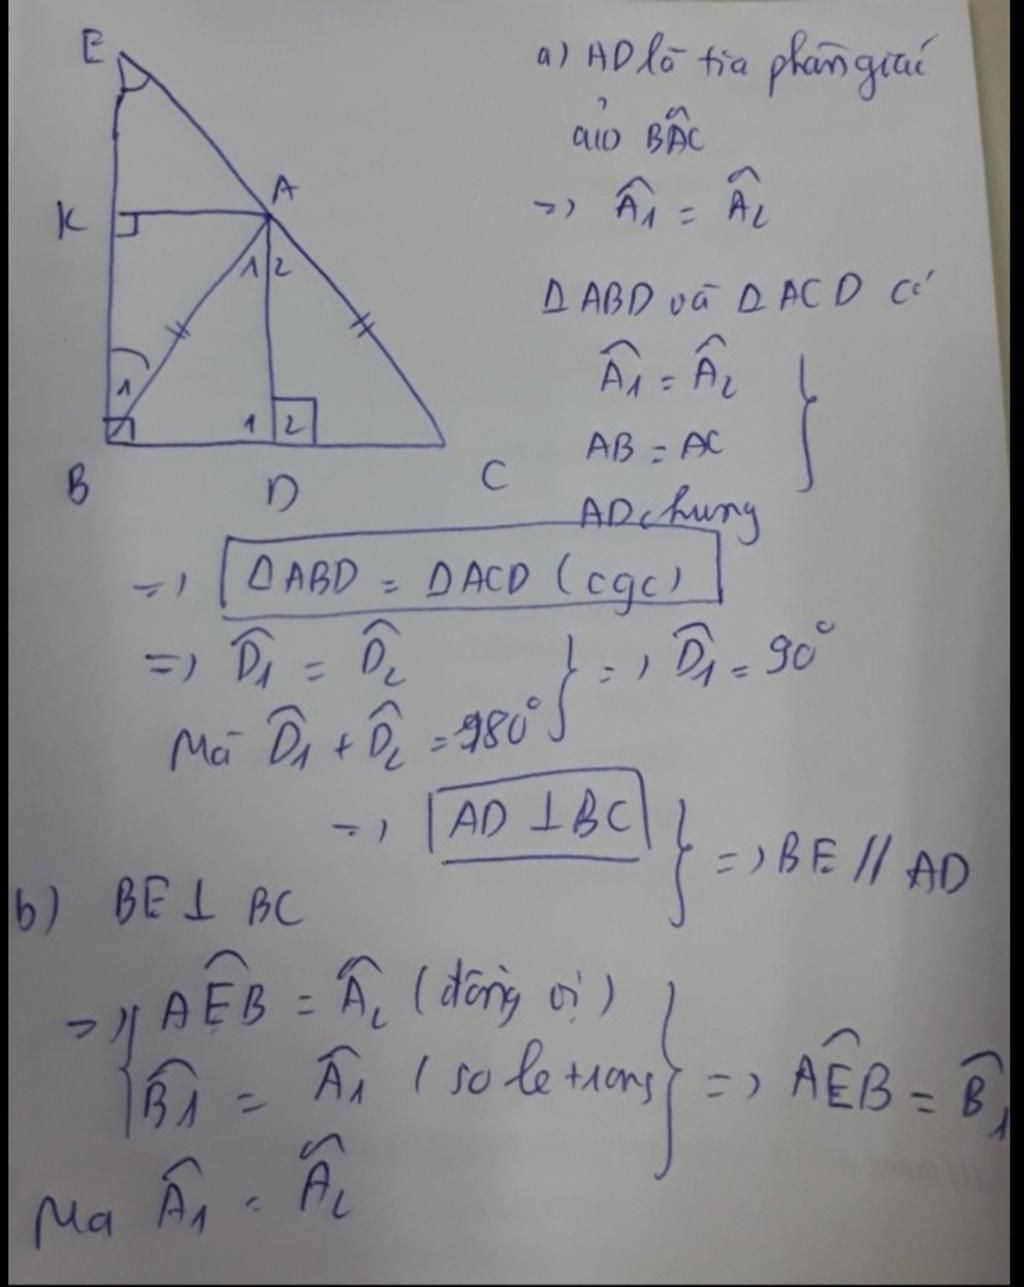 E
K
A
1 2
1
1 2
B
D
C
a) AD là tia phân giác
của BÂC
=> Â1 = Â2
Δ ABD và Δ ACD có
Â1 = Â2
AB = AC
AD chung
=> ΔABD = ΔACD (cgc)
=> D̂1 = D̂2 => D̂1 = 90°
Mà D̂1 + D̂2 = 180°
=> AD ⊥ BC
=> BE // AD
b) BE ⊥ BC
=> AÊB = Â2 (đồng vị)
B̂1 = Â1 (so le trong) => AÊB = B̂1
Mà Â1 = Â2